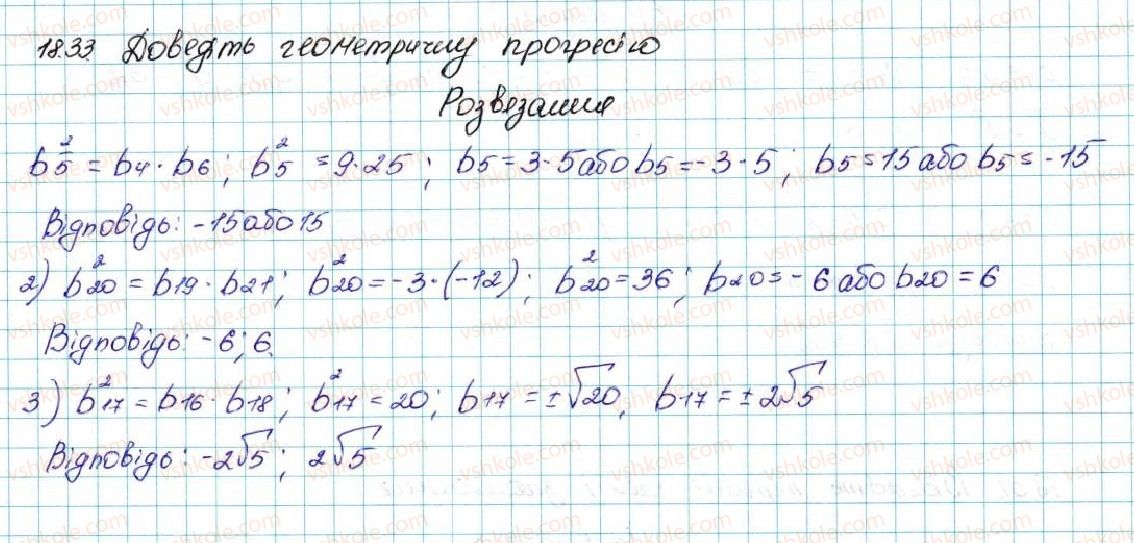 18.33. Доведіть геометричну прогресію
Розвезання
b₅² = b₄ · b₆; b₅² = 9·25; b₅ = 3·5 або b₅ = -3·5; b₅ = 15 або b₅ = -15
Відповідь: -15 або 15
2) b₂₀² = b₁₉ · b₂₁; b₂₀² = -3·(-12); b₂₀² = 36; b₂₀ = -6 або b₂₀ = 6
Відповідь: -6; 6.
3) b₁₇² = b₁₆ · b₁₈; b₁₇² = 20; b₁₇ = ±√20, b₁₇ = ±2√5
Відповідь: -2√5; 2√5